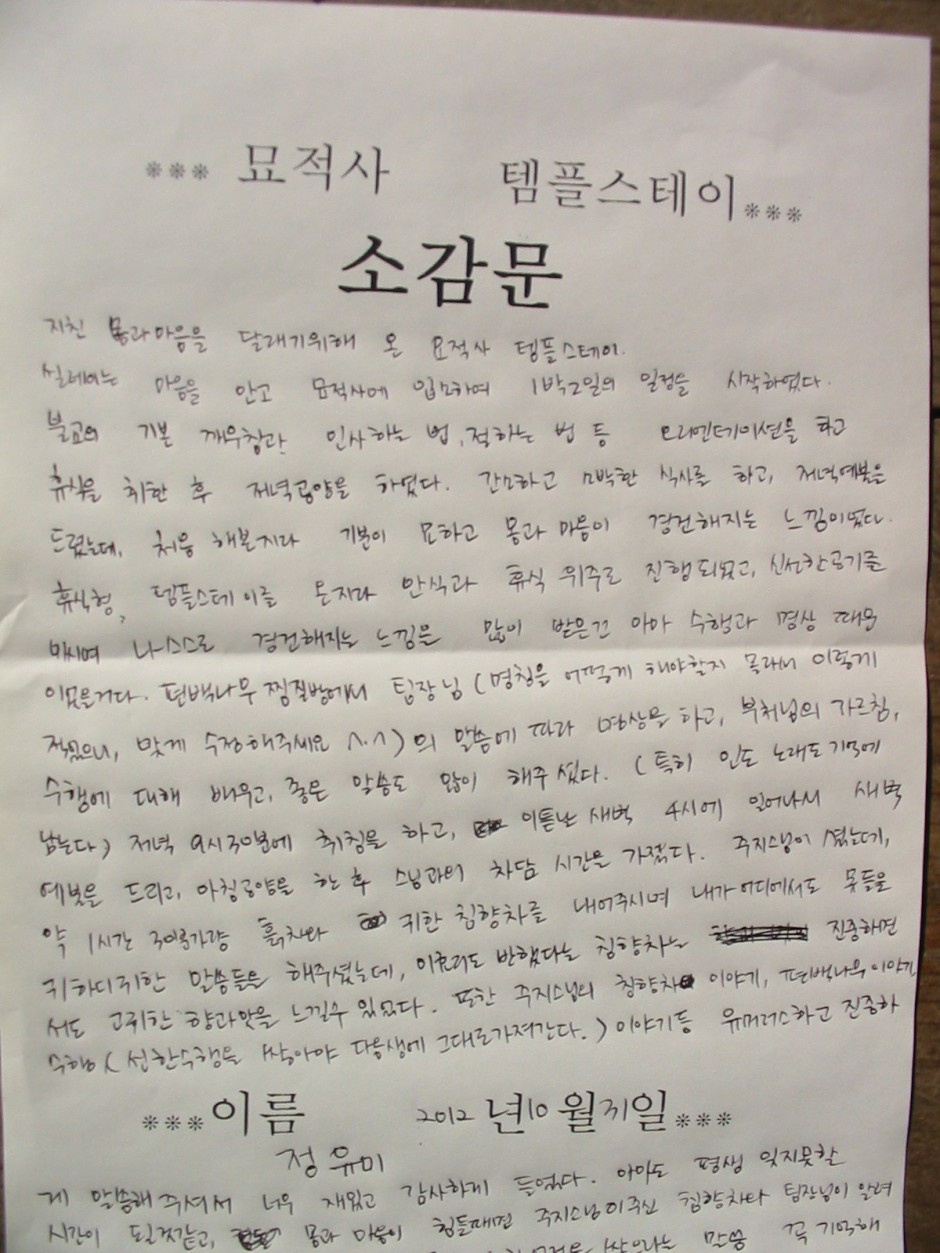 *** 묘적사 템플스테이 ***
소감문
지친 몸과마음을 달래기위해 온 묘적사 템플스테이.
설레이는 마음을 안고 묘적사에 입소하여 1박2일의 일정을 시작하였다.
불교의 기본 깨우침과 인사하는 법, 절하는 법 등 오리엔테이션을 하고
휴식을 취한 후 저녁공양을 하였다. 간소하고 소박한 식사를 하고, 저녁예불은
드렸는데, 처음 해본지라 기분이 묘하고 몸과 마음이 경건해지는 느낌이였다.
휴식형, 템플스테이를 온지라 안식과 휴식 위주로 진행되었고, 신선한공기를
마시며 나스스로 경건해지는 느낌을 많이 받은건 아마 수행과 명상 때문
이었을거다. 편백나무 찜질방에서 팀장님 (명칭을 어떻게 해야할지 몰라서 이렇게
적었으니, 맞게 수정해주세요 ^.^) 의 말씀에 따라 명상을 하고, 부처님의 가르침,
수행에 대해 배우고, 좋은 말씀도 많이 해주셨다. (특히 인도 노래도 기억에
남는다) 저녁 9시30분에 취침을 하고, 이튿날 새벽 4시에 일어나서 새벽
예불은 드리고, 아침공양을 한 후 스님과의 차담 시간을 가졌다. 주지스님이 셨는데,
약 1시간 30분가량 흙차와 귀한 침향차를 내어주시며 내가 어디에서도 못들을
귀하디귀한 말씀들을 해주셨는데, 이효리도 반했다는 침향차는 진중하면
서도 고귀한 향과맛을 느낄수 있었다. 또한 주지스님의 침향차 이야기, 편백나무 이야기
수행 (선한수행을 쌓아야 다음생에 그대로가져간다.) 이야기등 유머러스하고 진중하
*** 이름 2012 년 10 월 31 일 ***
정유미
게 말씀해 주셔서 너무 재밌고 감사하게 들었다. 아마도 평생 잊지못할
시간이 될것같고, 몸과 마음이 힘들때면 주지스님이 주신 침향차와 팀장님이 알려
쌓으라는 말씀 꼭 기억해